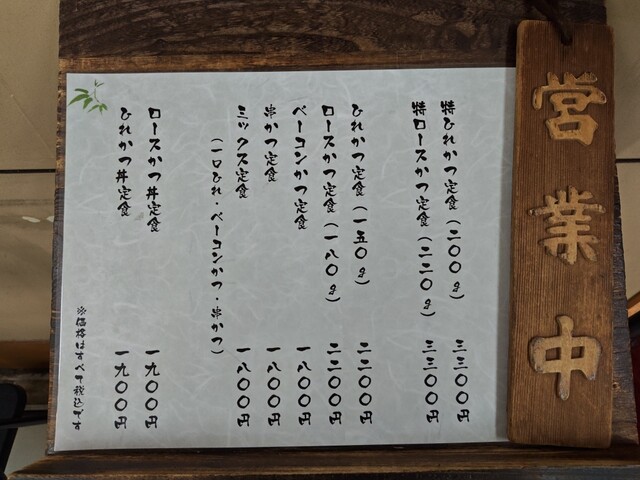 営業中
特ひれかつ定食(二〇〇g) 三三〇〇円
特ロースかつ定食(二二〇g) 三三〇〇円
ひれかつ定食(一五〇g) 二二〇〇円
ロースかつ定食(一八〇g) 二二〇〇円
ベーコンかつ定食 一八〇〇円
串かつ定食 一八〇〇円
ミックス定食 一八〇〇円
(一口ひれ・ベーコンかつ・串かつ)
ロースかつ丼定食 一九〇〇円
ひれかつ丼定食 一九〇〇円
※価格はすべて税込です